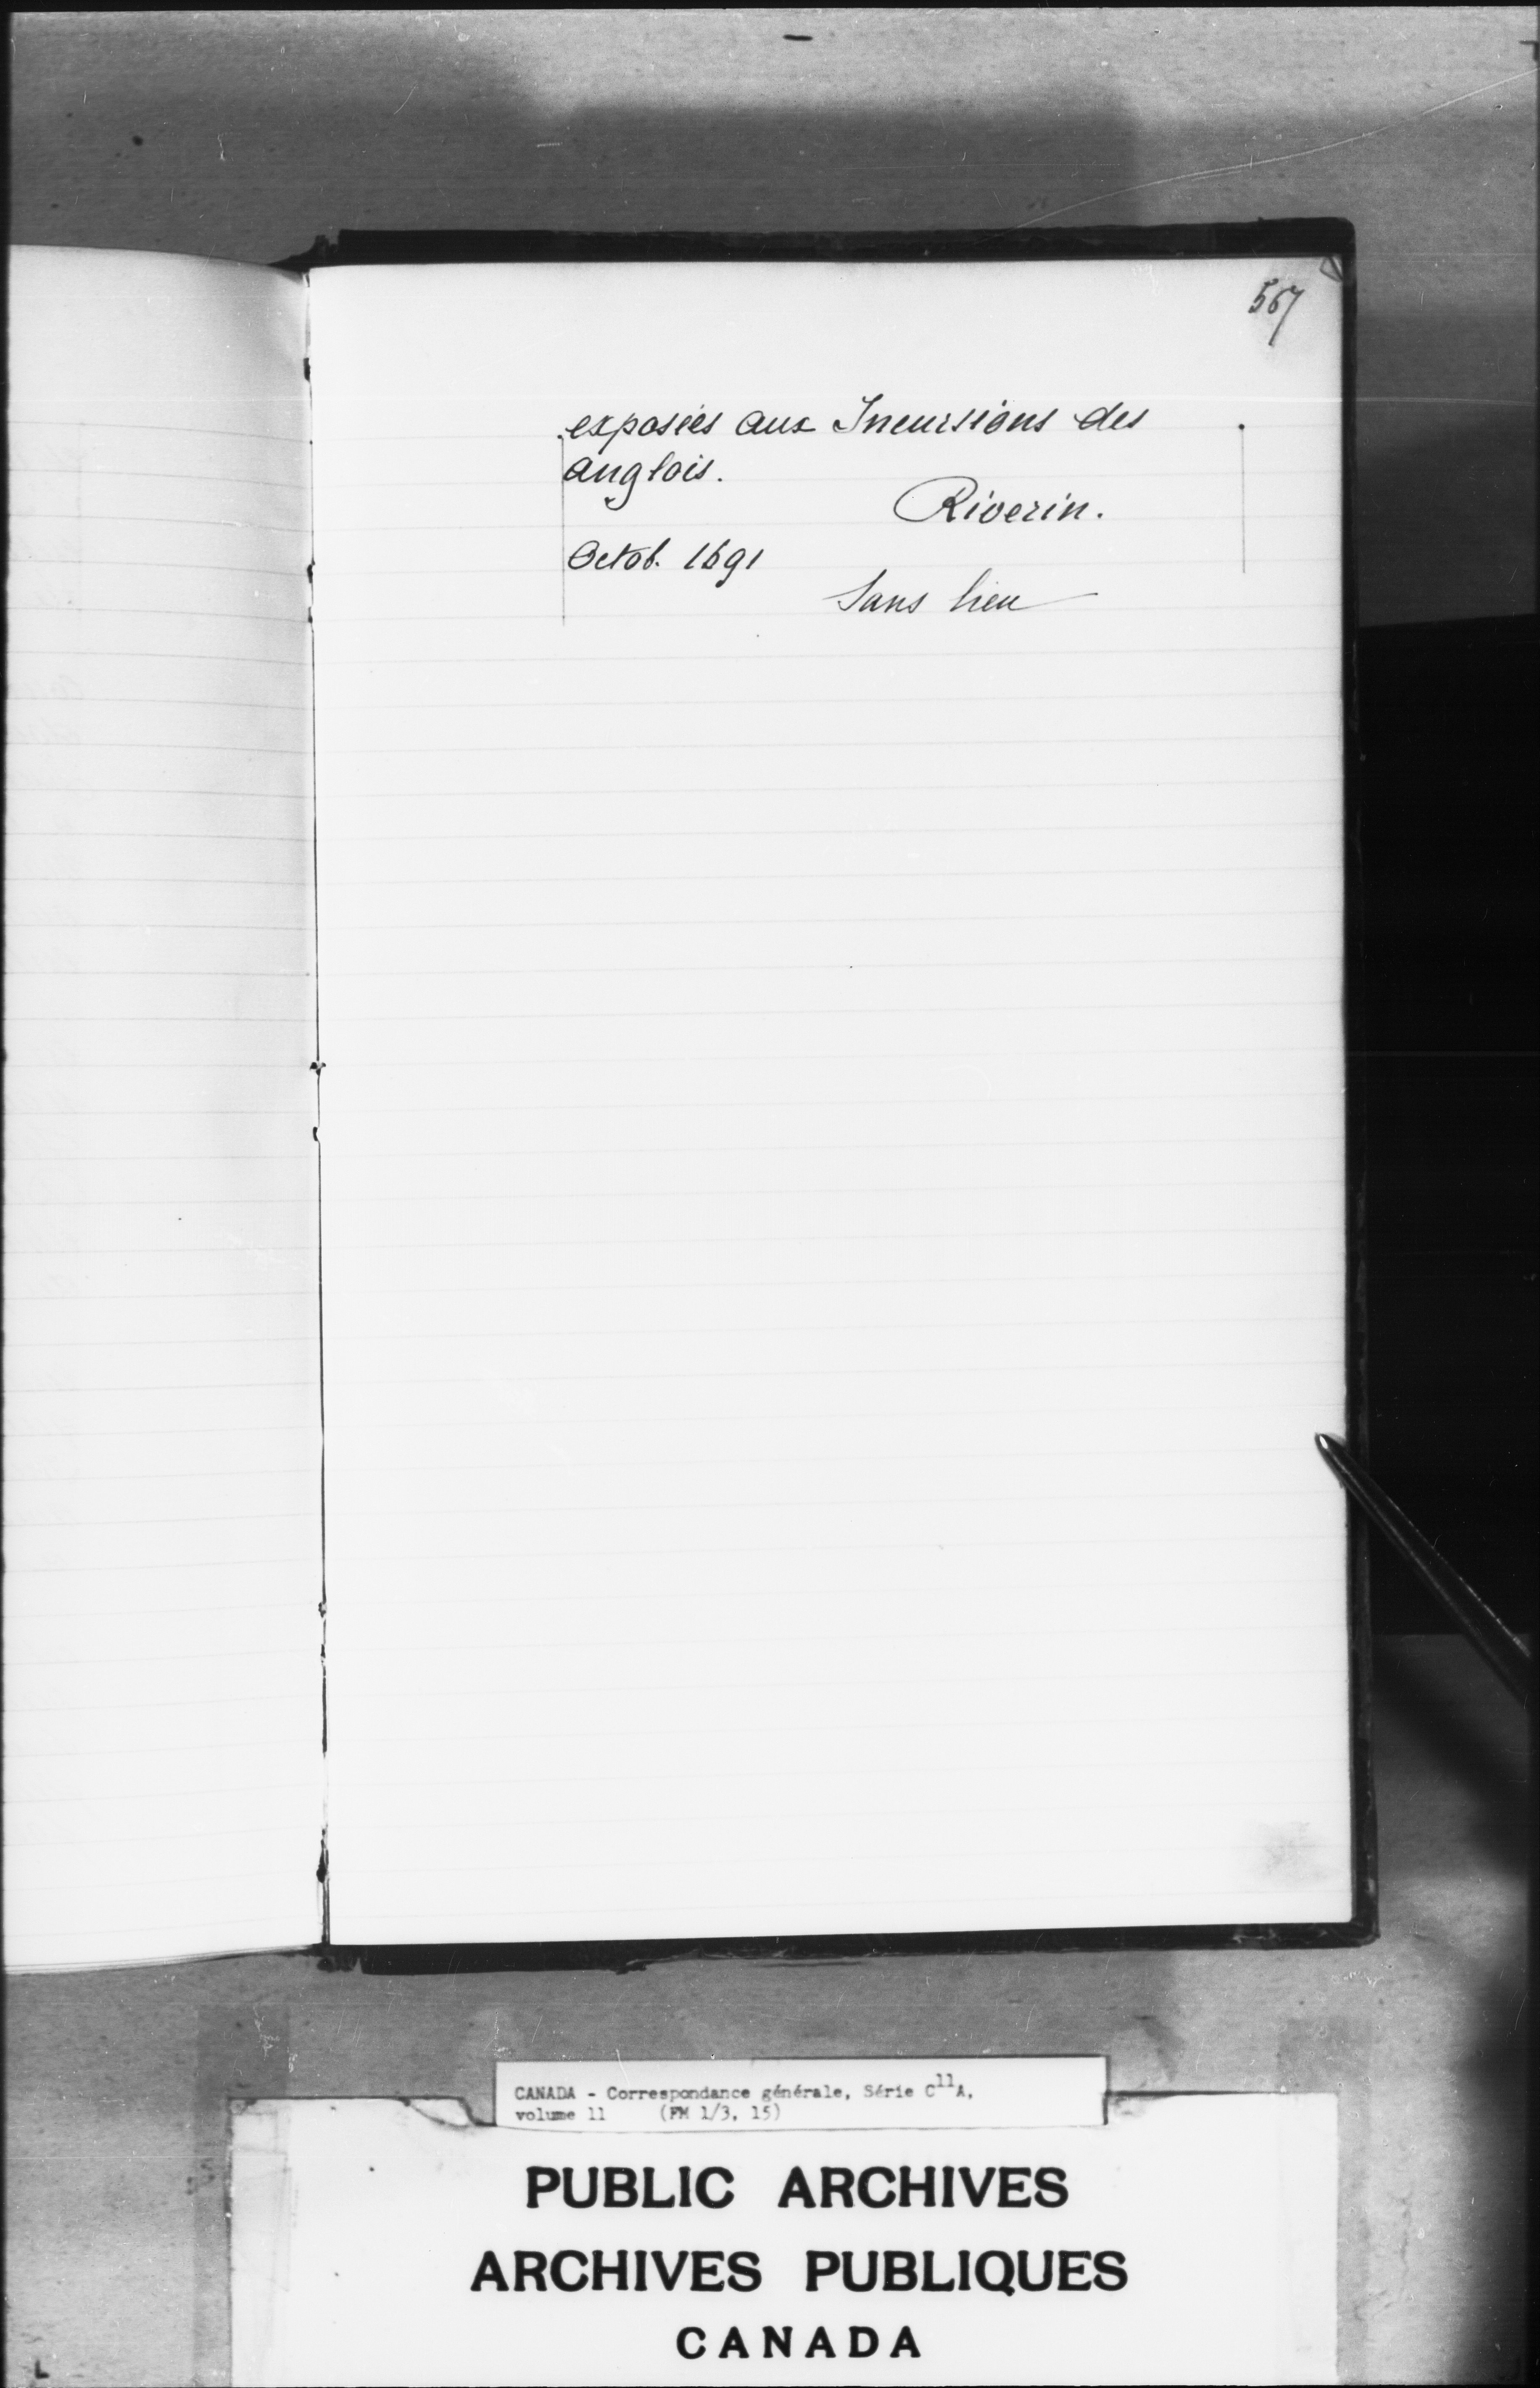 567
exposées aux Incursions des
anglois.
Riverin.
Octob. 1691
Sans lieu
CANADA - Correspondance générale, Série C11A,
volume 11 (FM 1/3, 15)
PUBLIC ARCHIVES
ARCHIVES PUBLIQUES
CANADA